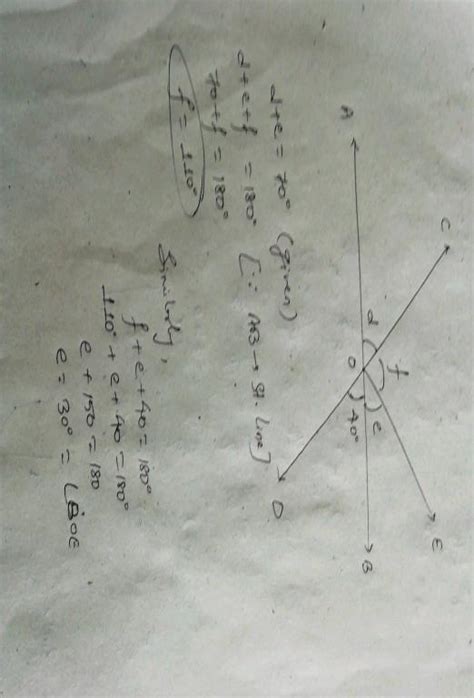 C
E
d
f
e
A
O
40°
B
D
d+e = 70° (given)
d+e+f = 180° [∵ AB → st. line]
70+f = 180°
f = 110°
Similarly,
f+e+40 = 180°
110°+e+40 = 180°
e+150 = 180
e = 30° = ∠BOE